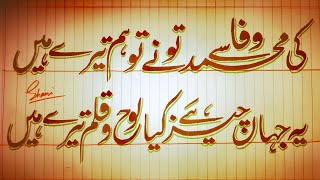 کی محمد سے وفا تو نے تو ہم تیرے ہیں
Shani
یہ جہاں چیز ہے کیا لوح و قلم تیرے ہیں